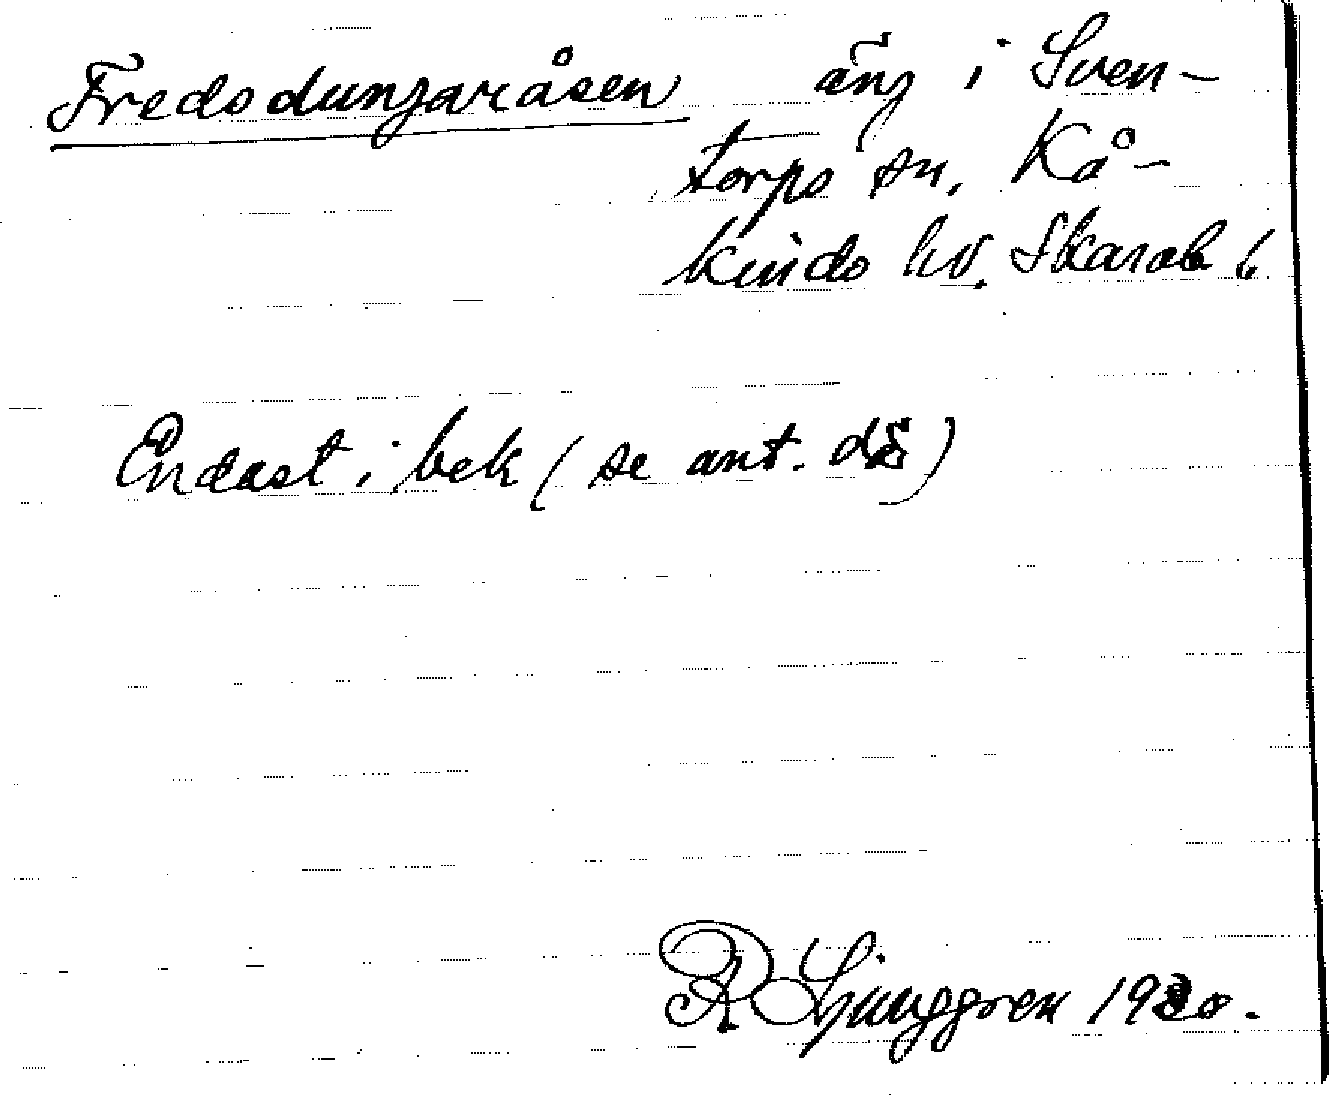 Fredsdungaråsen äng i Sven-
torps sn, Kå-
kinds hd. Skarab l.
Endast i bek (se ant. d:o)
R Ljunggren 1930.